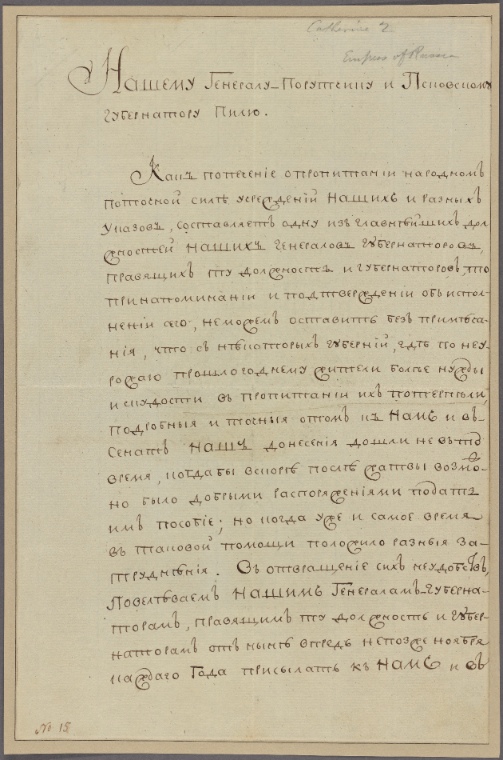 Catherine 2.
Empress of Russia
Нашему Генералу-Порутчику и Псковскому
губернатору Пилю.
Какъ попеченіе о пропитаніи народномъ
по точной силѣ учрежденій НАШИХЪ и разныхъ
Указовъ, составляетъ одну изъ главнѣйшихъ дол
жностей НАШИХЪ Генераловъ Губернаторовъ,
правящихъ ту должность и губернаторовъ, то
при напоминаніи и подтвержденіи объ испол
неніи сего, не можемъ оставить безъ примѣча
нія, что съ нѣкоторыхъ губерній, гдѣ по неу
рожаю прошлогоднему жители болѣе нужды
и скудости въ пропитаніи ихъ потерпѣли,
подробныя и точныя о томъ къ НАМЪ и въ
Сенатъ НАШЪ донесенія дошли не въ то
время, когда бы вскорѣ послѣ жатвы возмо
жно было добрыми распоряженіями подать
имъ пособіе; но когда уже и самое время
въ таковой помощи положило разныя за
трудненія. Въ отвращеніе сихъ неудобствъ,
Повелѣваемъ НАШИМЪ Генераламъ-Губерна
торамъ, правящимъ ту должность и губер
наторамъ отъ нынѣ впредь не позже ноября
каждаго Года присылать къ НАМЪ и въ
No 15